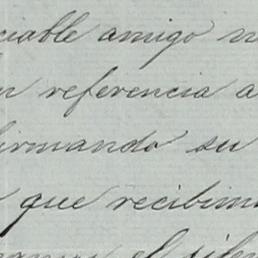 ciable amigo
referencia a
firmando su
que recibim
el silen